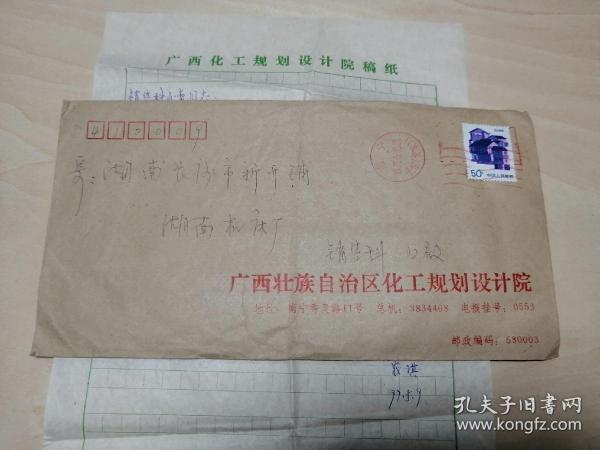 广西化工规划设计院稿纸
410009
寄：湖南长沙市新开铺
湖南机床厂
销售科 收
50分
广西壮族自治区化工规划设计院
地址：南宁秀灵路11号 总机：3834468 电报挂号：0553
邮政编码：530003
97.5.9
孔夫子旧书网
www.kongfz.com